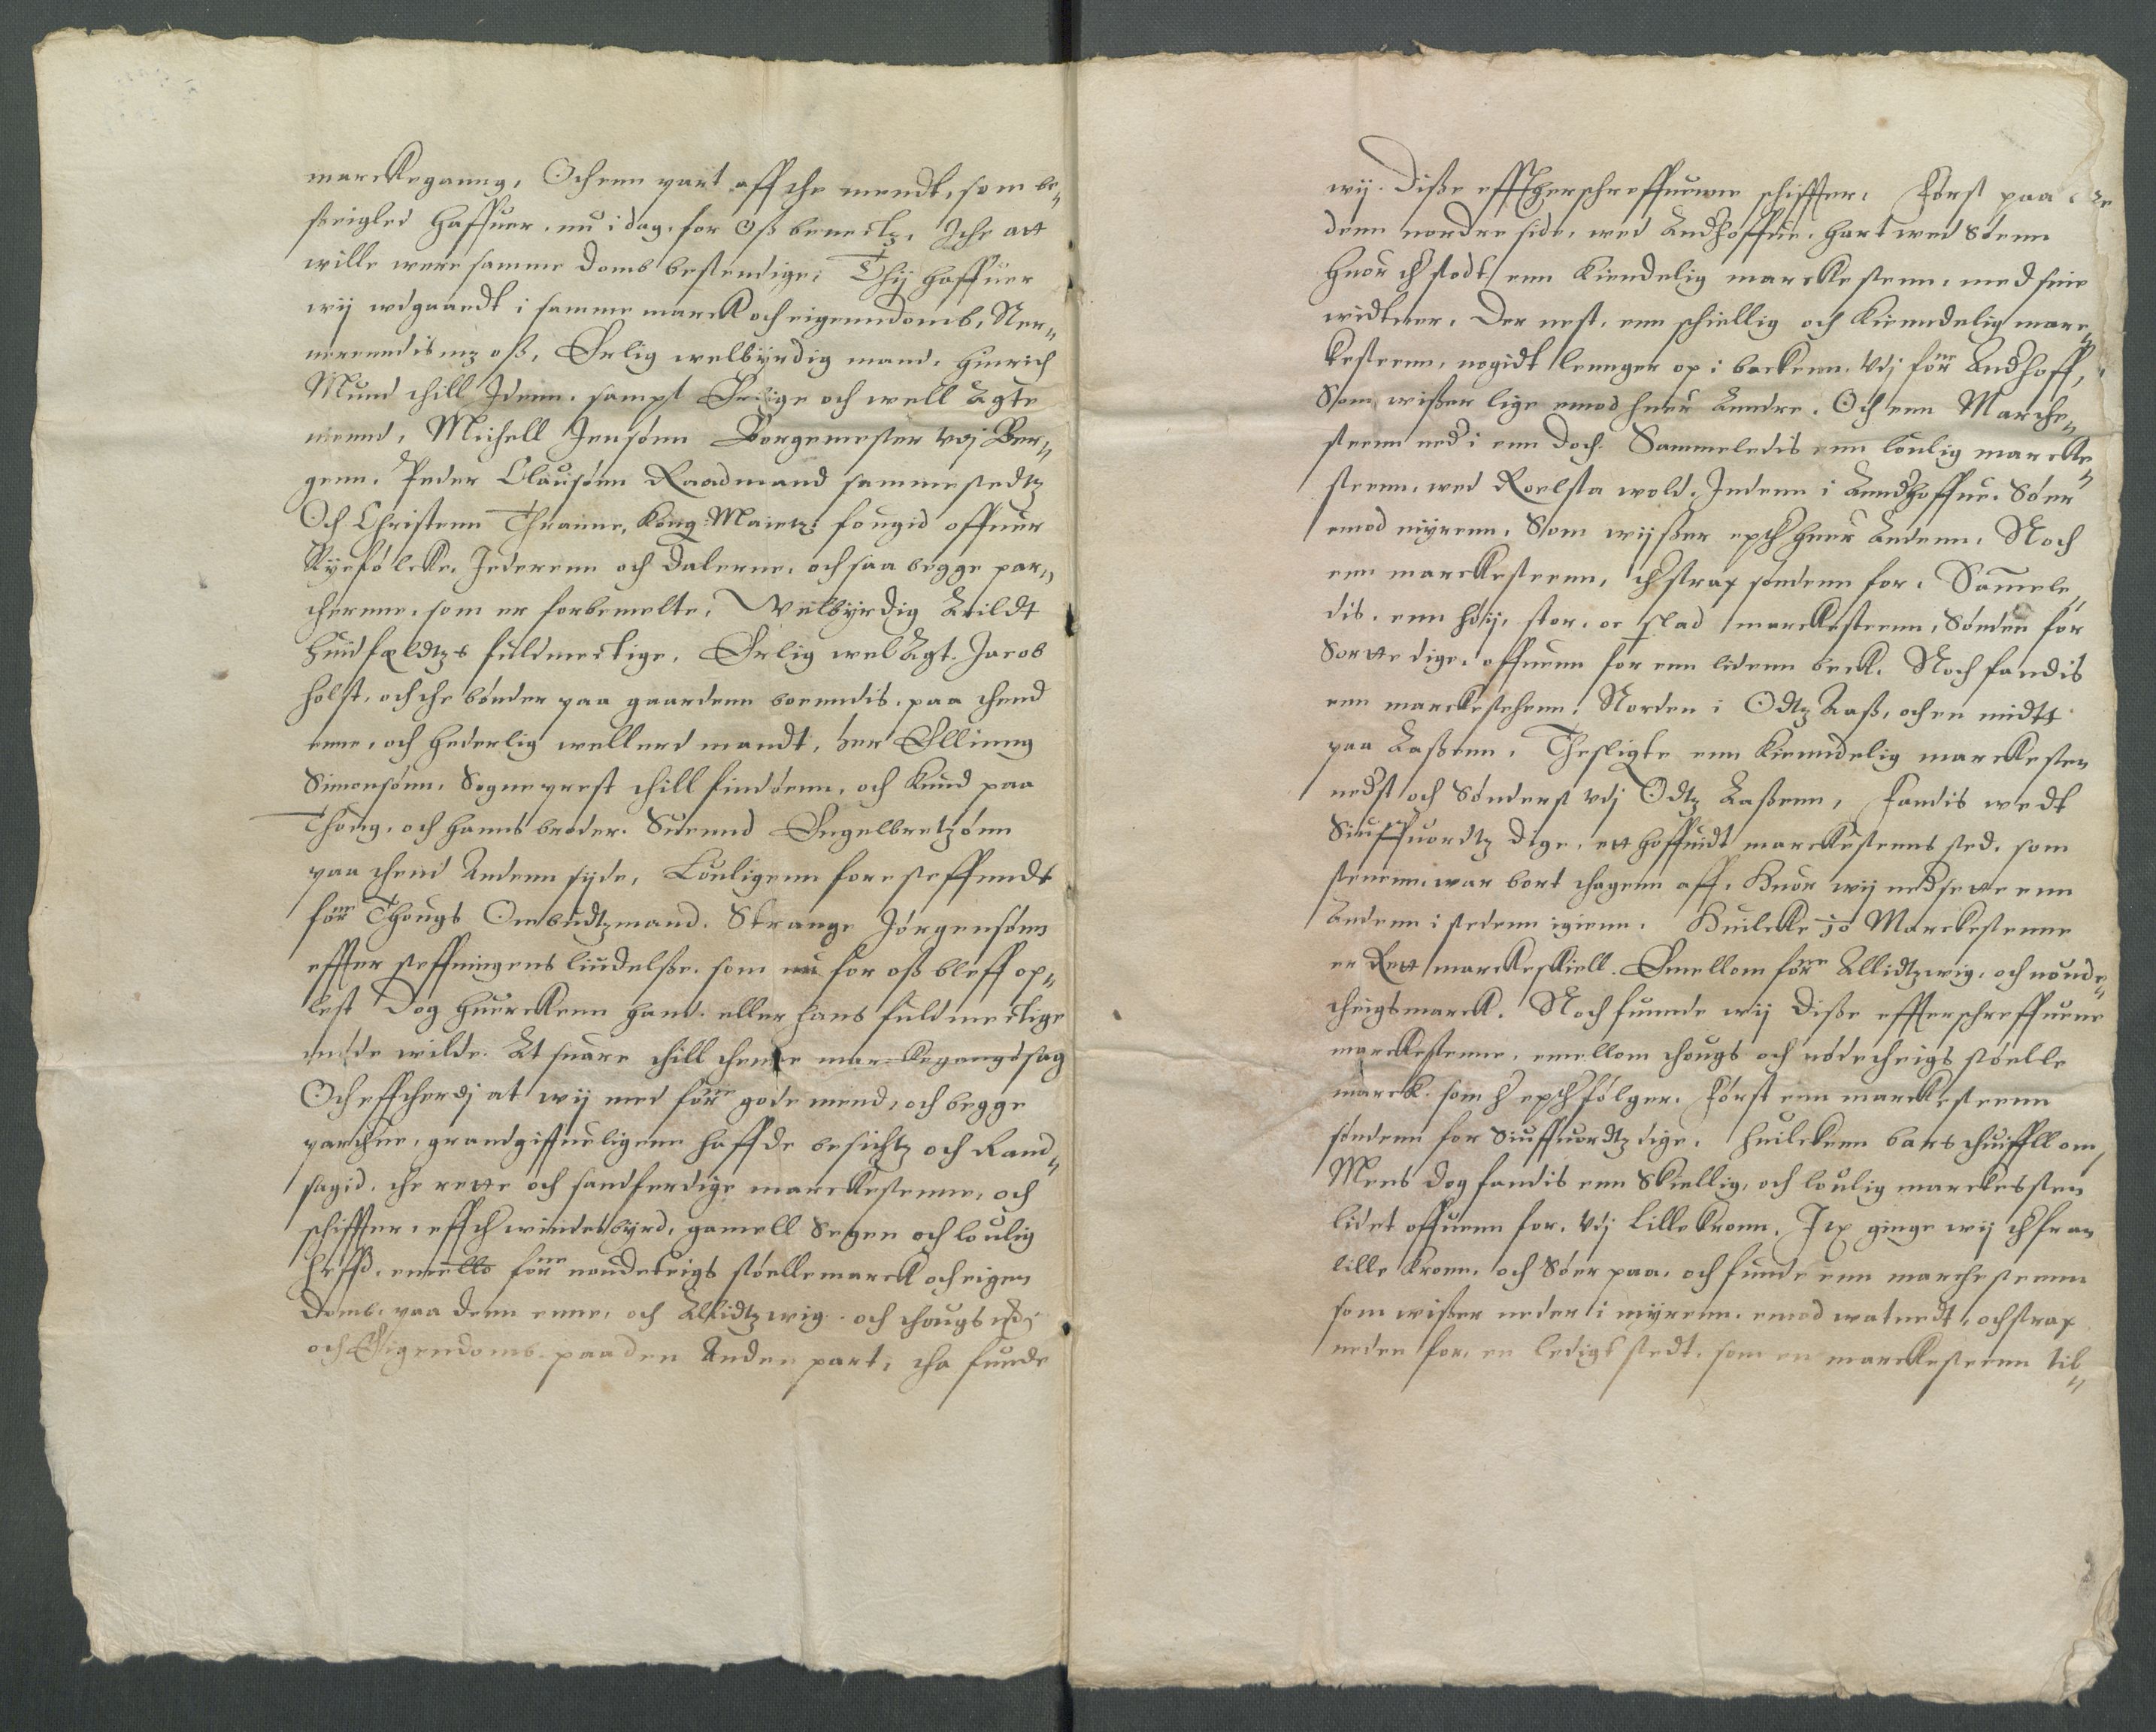 marckegaanng, Och enn part aff the mendt, som be„
seigled haffuer, nu i dag, for oß benectz, Iche att
wille were samme domb bestendige; Thij haffuer
wij wdgaandt i samme marck och eigenndomb, Ner„
uerendis mz oß, Erlig welbyrdig mand, Hinrich
Mund thill Idenn, sampt Erlige och well Agte
mennd, Michell Jensønn Borgemester vdj Ber„
genn, Peder Clausønn Raadmand sammestedtz
Och Christenn Thranne, Kong: Maietz: fougid offuer
Ryefølcke, Jederenn och dalerne, och saa begge par„
therne, som er forbemelte, Welbyrdig Arildt
Huidfeldtzs fuldmectige, Erlig wel Agt. Jacob
holst, och the bønder paa gaardenn boenndis, paa thend
enne, och Hederlig wellerd mandt, her Elling
Simonsønn, Sogneprest thill findøenn, och Knud paa
Thoug, och hanns broder. Suennd Engelbretzønn
paa thend Andenn sijde, Louligenn fore steffnndt
forne Thougs Ombudtzmand. Strange Jørgensønn
effter steffningens liudelße, som nu for oß bleff op„
lest Dog huerckenn hand eller hans fuldmectige
møde wilde. At suare thill thenne marckegangs sag
Och efftherdj at wij med forne gode mend, och begge
parthne, grandgiffueligenn haffde besichtz och Rand„
sagid, the rette och sandferdige marckestenne, och
schiffter, effth windesbyrd, gamell Segen och loulig
heffd, emello forne noudeteigs støelle marck och eigen
domb, paa denn enne, och Allidtzwig och thougs
och Eigendomb paa den Anden part, tha funde

wij. Diße effthserschreffuenne schiffter. Først paa
denn nordre side, wed Andhoffue, hart wed Søenn
Huor th stodt enn Kiendelig marckestenn, med sine
widtner. Der nest, enn schiellig och Kienndelig marc„
kesteenn, nogidt lennger op i backenn, Vdj forne Andhoff,
Som wißer lige emod huer Andre. Och enn Marcke„
steenn ned i enn doch. Sammeledis enn loulig marcke„
steenn, wed Roelsta wold. Indenn i Anndhoffue. Søer
emod myrenn. Som wijßer epth huer Andenn, Noch
enn marckesteenn, th strax søndenn for. Samele„
dis, enn høij, stor, oc flad marckesteenn, Sønden for
Sortte dige, offuenn for enn lidenn beck. Noch fandis
enn marckestehenn, Norden i Odtz Aaß, och en midtt
paa Aaßenn, Thesligste enn Kienndelig marckesten
nedst och Sønderst vdj Odtz Aaßenn, Fandis wedt
Siuffuordtz dige, ett hoffuidt marckesteens sted, som
steenenn war bort thagenn aff. Huor wij nedsette enn
Andenn i stedenn igienn. Huilcke 10 Marckestenne
er Rett marckeskiell. Emellom forne Allidtzwig, och noude„
theigs marck. Noch funnde wij diße effterschreffuene
marckestenne, emellom thougs och nødetheigs støelle
marck, som h epth følger. Først enn marckesteenn
søndenn for Siuffuordtz dige, huilckenn bars thuiffll om,
Menns dog fandis enn Skiellig, och loulig marckessten
lidet offuenn for, vdj lille kroenn. Itx ginge wij th fran
lille kroen, och Søer paa, och funde enn marchesteenn
som wißer neder i myrenn, emod watnedt, och strax
neden for, en ledigt stedt, som en marckesteenn til„